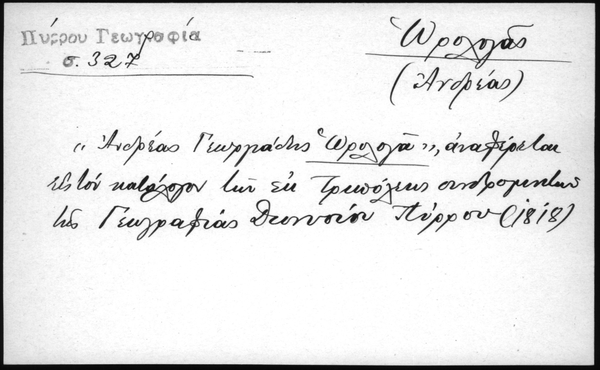 Πύρρου Γεωγραφία
σ. 327
Ὡρολογᾶς
(Ἀνδρέας)
"Ἀνδρέας Γεωργιάδης Ὡρολογᾶ", ἀναφέρεται
εἰς τὸν κατάλογον τῶν ἐκ Τριπόλεως συνδρομητῶν
τῆς Γεωγραφίας Διονυσίου Πύρρου (1818)